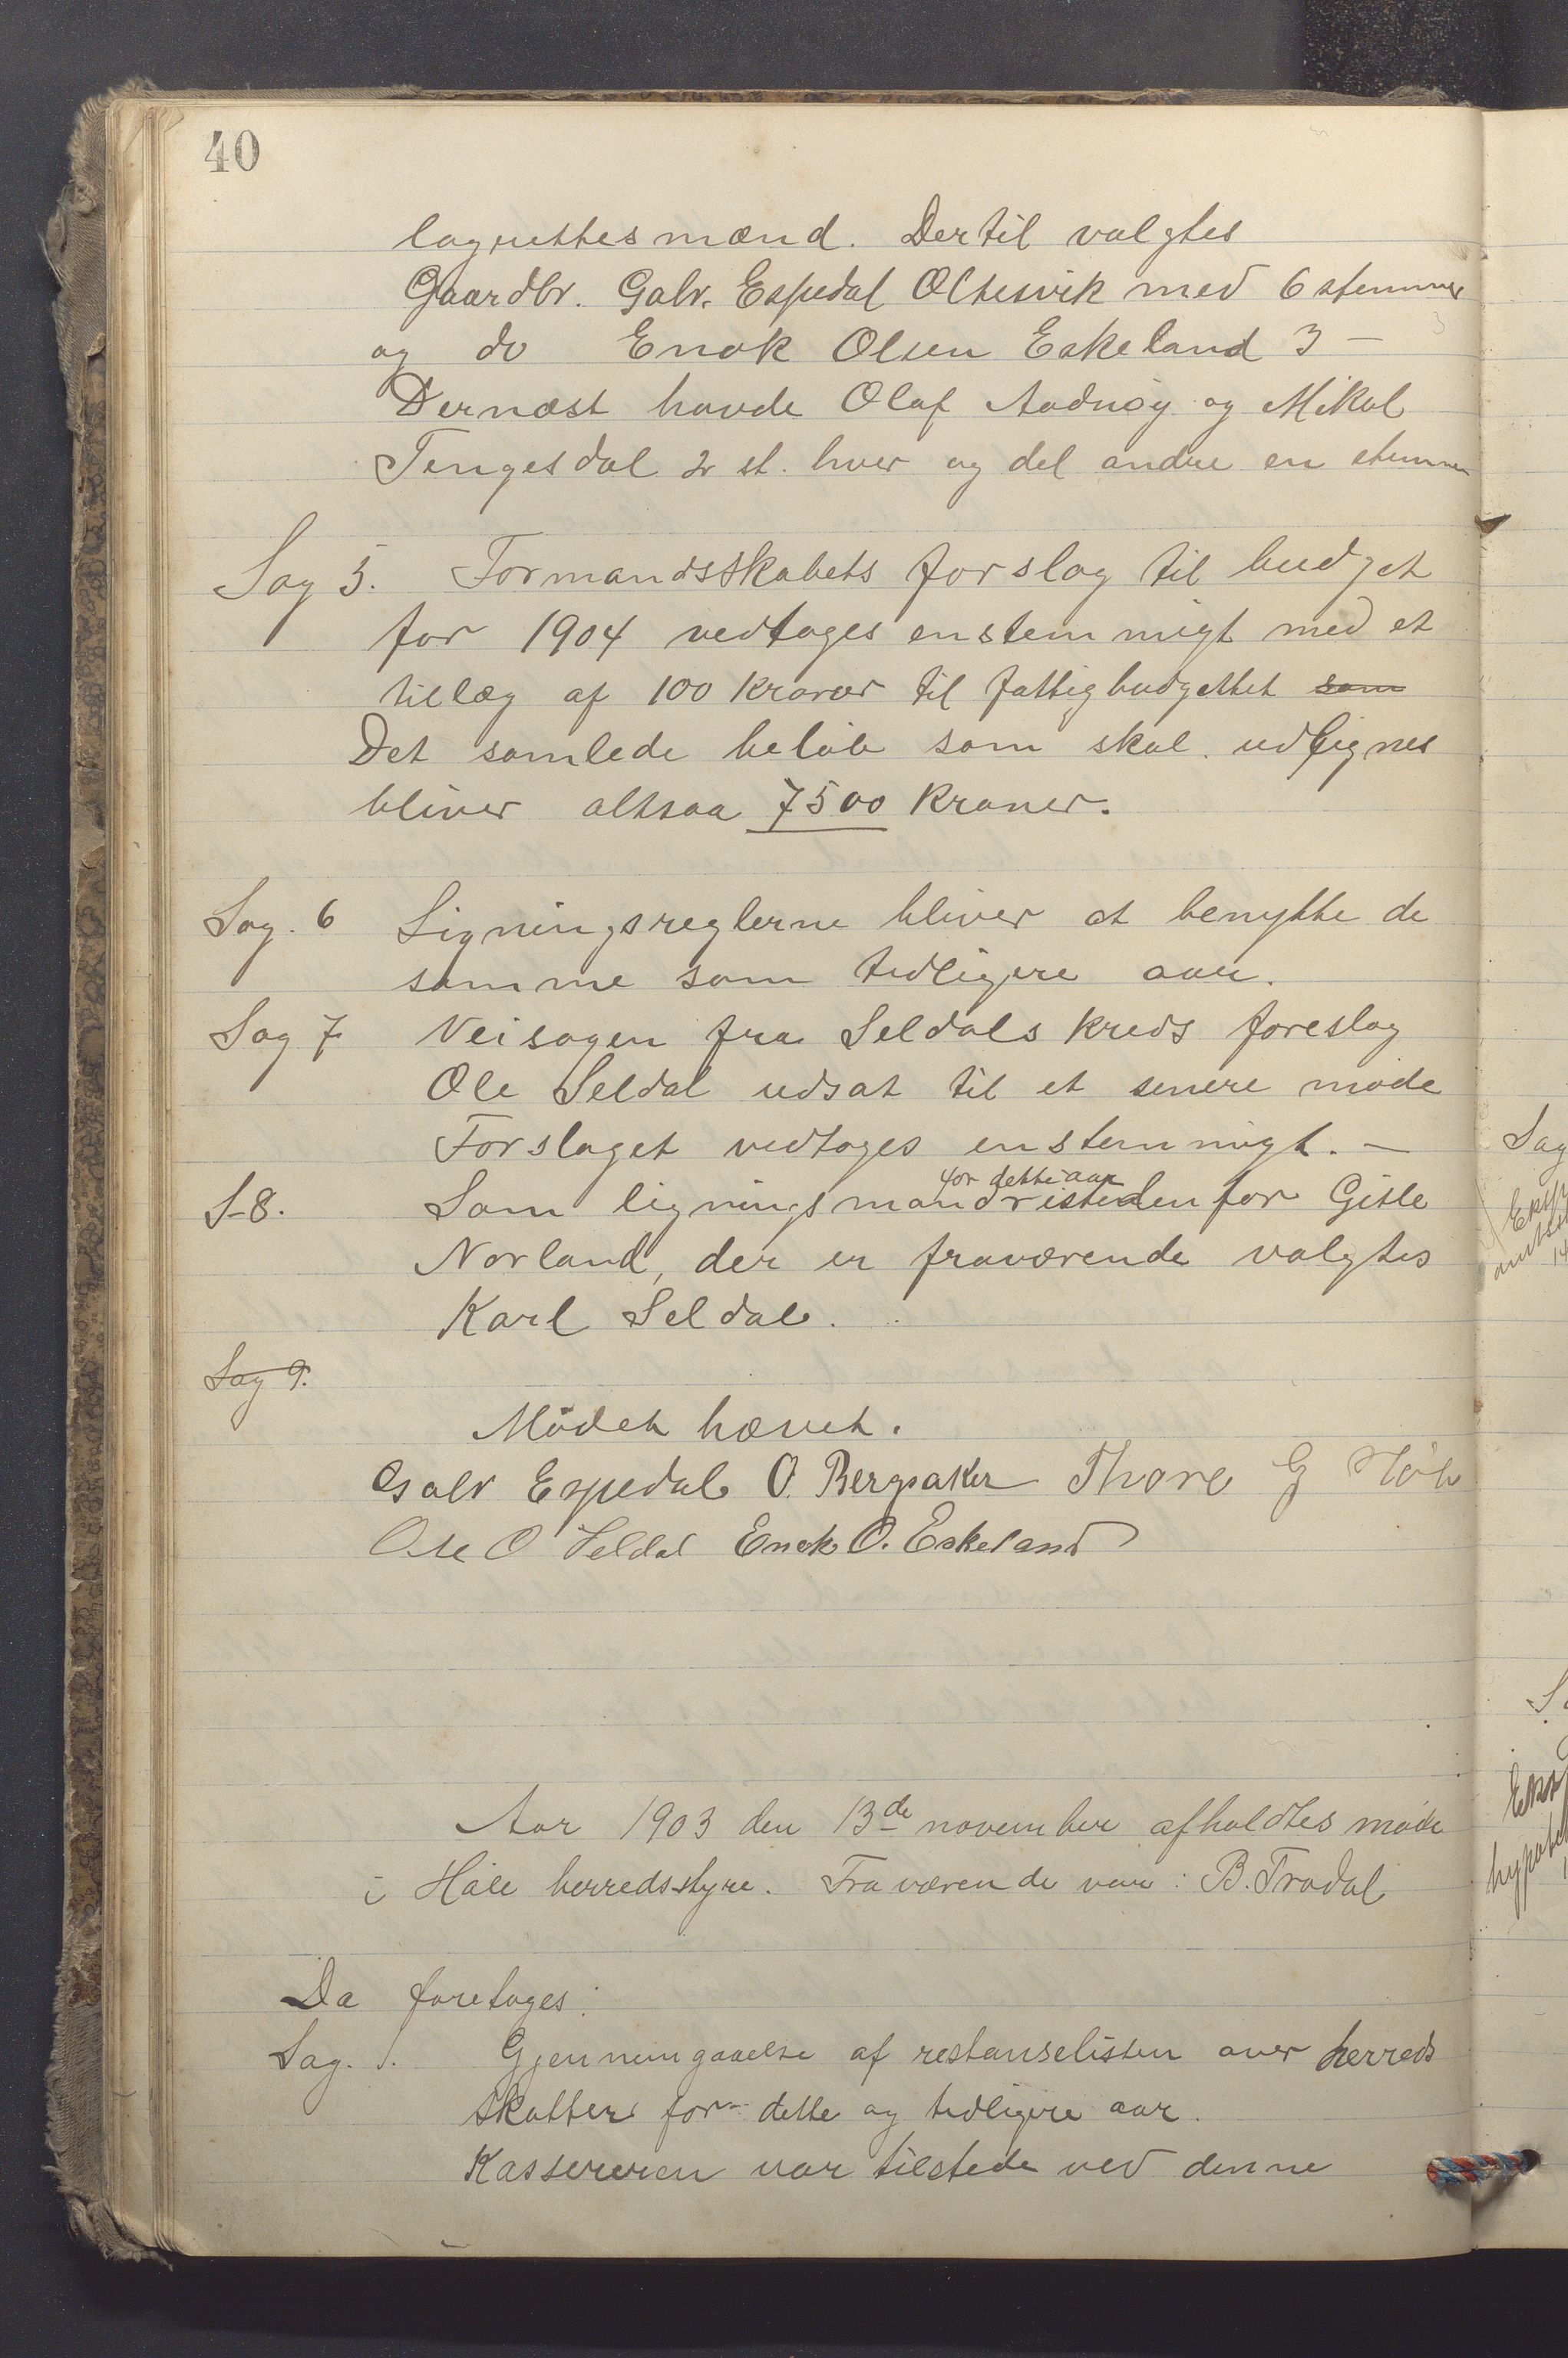 40
lagrettesmænd. Dertil valgtes
Gaardbr. Galv. Espedal Oltesvik med 6 stemmer
og do Enok Olsen Eskeland 3 —
Dernæst havde Olaf Aadnøy og Mikal
Tengesdal 2 st. hver og del andre en stemme
Sag 5. Formandsskabets forslag til budget
for 1904 vedtoges enstemmigt med et
tillæg af 100 kroner til fattigbudgettet som
Det samlede beløb som skal udlignes
bliver altsaa 7500 kroner.
Sag. 6 Ligningsreglerne bliver at benytte de
samme som tidligere aar.
Sag 7 Veisagen fra Seldals kreds foreslog
Ole Seldal udsat til et senere møde
Forslaget vedtoges enstemmigt. —
for dette aar
S-8. Som ligningsmand istedenfor Gitle
Norland, der er fraværende valgtes
Karl Seldal.
Sag 9.
Mödet hævet.
Galv Espedal O. Bergsaker Thore G
Ole O Seldal Enok O. Eskeland
Aar 1903 den 13de november afholdtes møde
i Høle herredsstyre. Fraværende var: B. Tradal
Da foretoges:
Sag. 1. Gjennemgaaelse af restanselisten over herreds
skatter for dette og tidligere aar.
Kassereren var tilstede ved denne
Sag